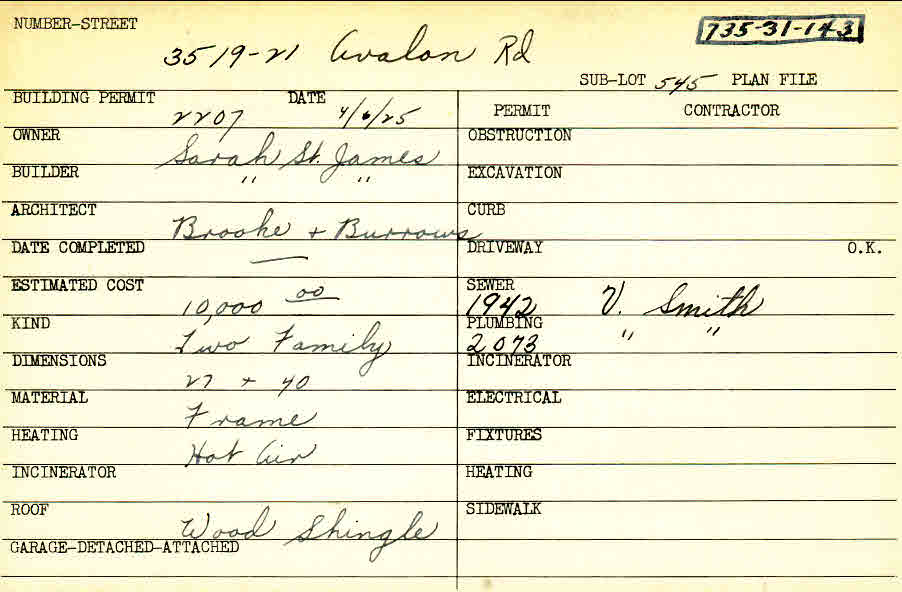 NUMBER-STREET
735-31-143
3519-21 Avalon Rd
SUB-LOT 545 PLAN FILE
BUILDING PERMIT DATE
2207 4/6/25
PERMIT CONTRACTOR
OWNER
Sarah St. James
OBSTRUCTION
BUILDER
" "
EXCAVATION
ARCHITECT
Brooke + Burrows
CURB
DATE COMPLETED
—
DRIVEWAY O.K.
ESTIMATED COST
10,000 00
SEWER
1942 V. Smith
KIND
Two Family
PLUMBING
2073 " "
DIMENSIONS
27 + 40
INCINERATOR
MATERIAL
Frame
ELECTRICAL
HEATING
Hot Air
FIXTURES
INCINERATOR
HEATING
ROOF
Wood Shingle
SIDEWALK
GARAGE-DETACHED-ATTACHED